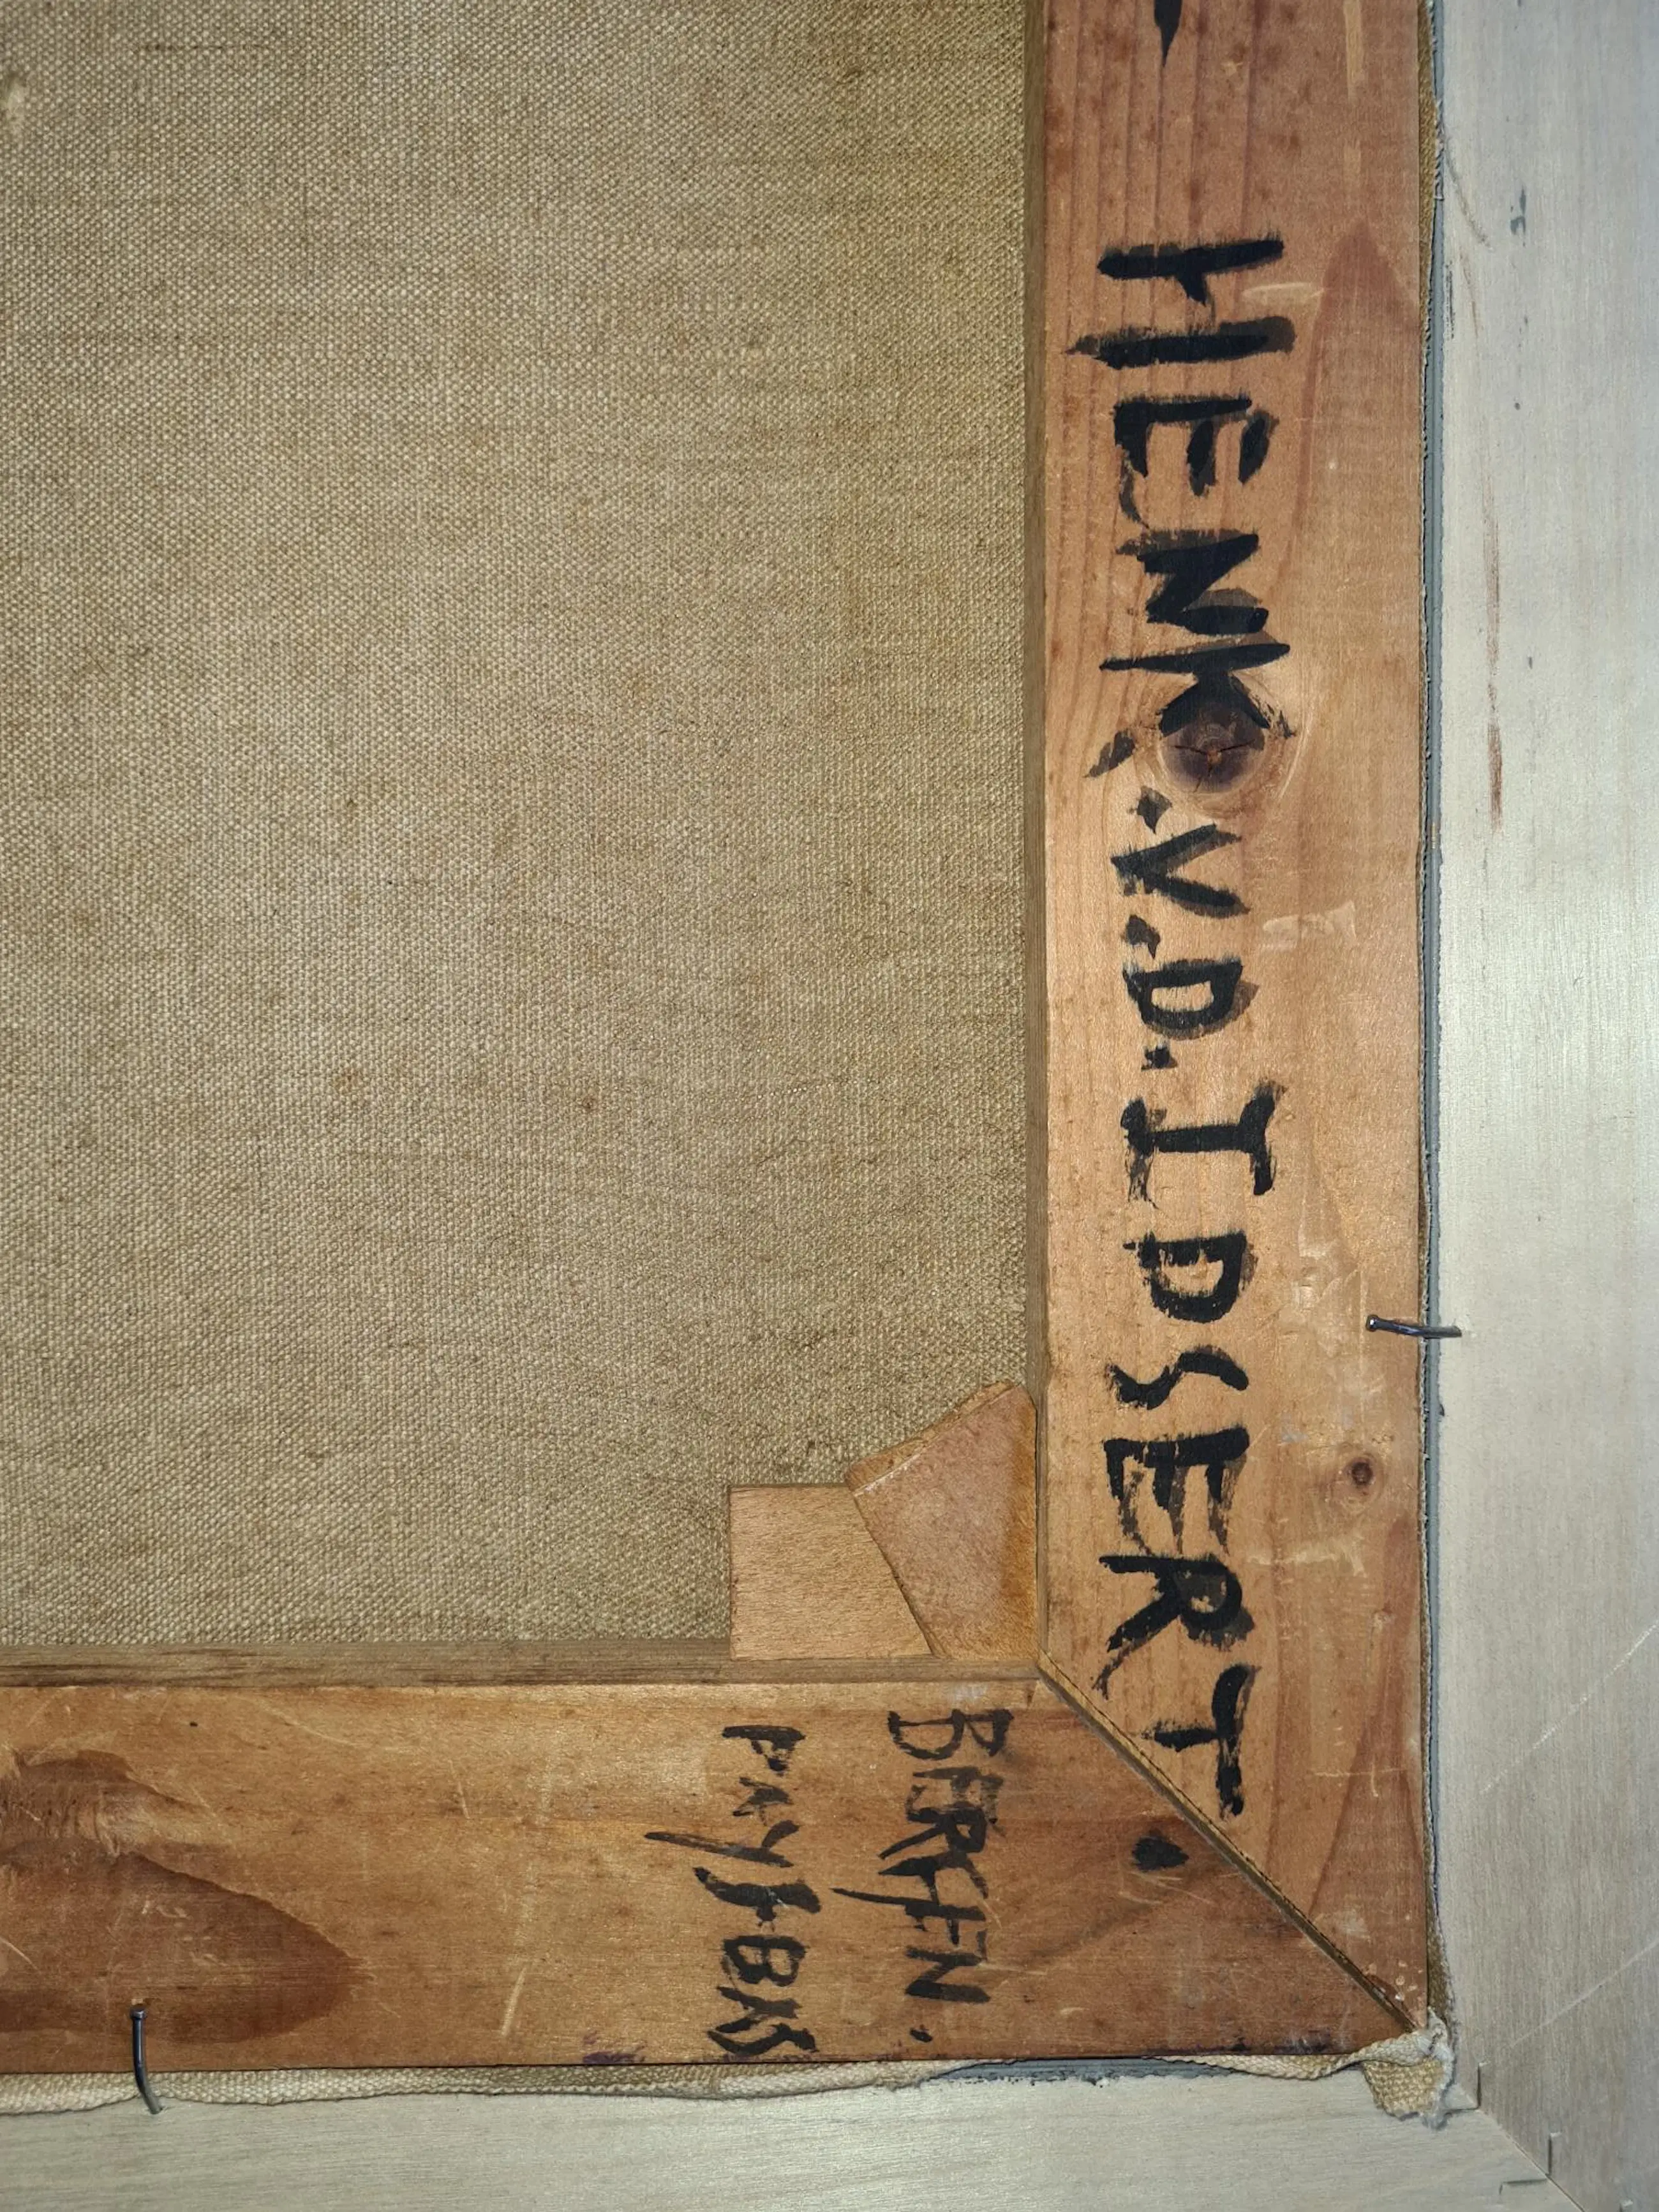 HENK.V.D.IDSERT.
BERGEN.
PAYS-BAS